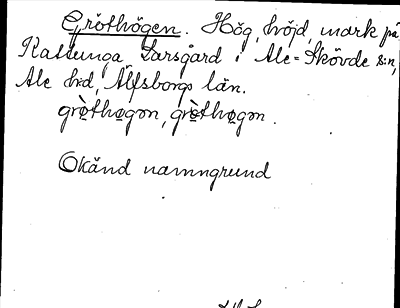 Gröthögen. Hög, höjd, mark på
Kattunga Larsgård i Ale-Skövde s:n,
Ale hd, Älfsborgs län.
grọ̀thøgən, grẹ̀thøgən.
Okänd namngrund